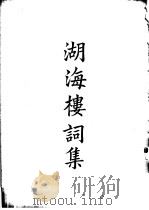 湖海樓詞集